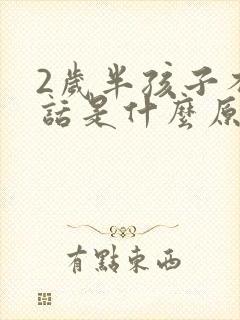 2歲半孩子
話是什麼原
有點東西